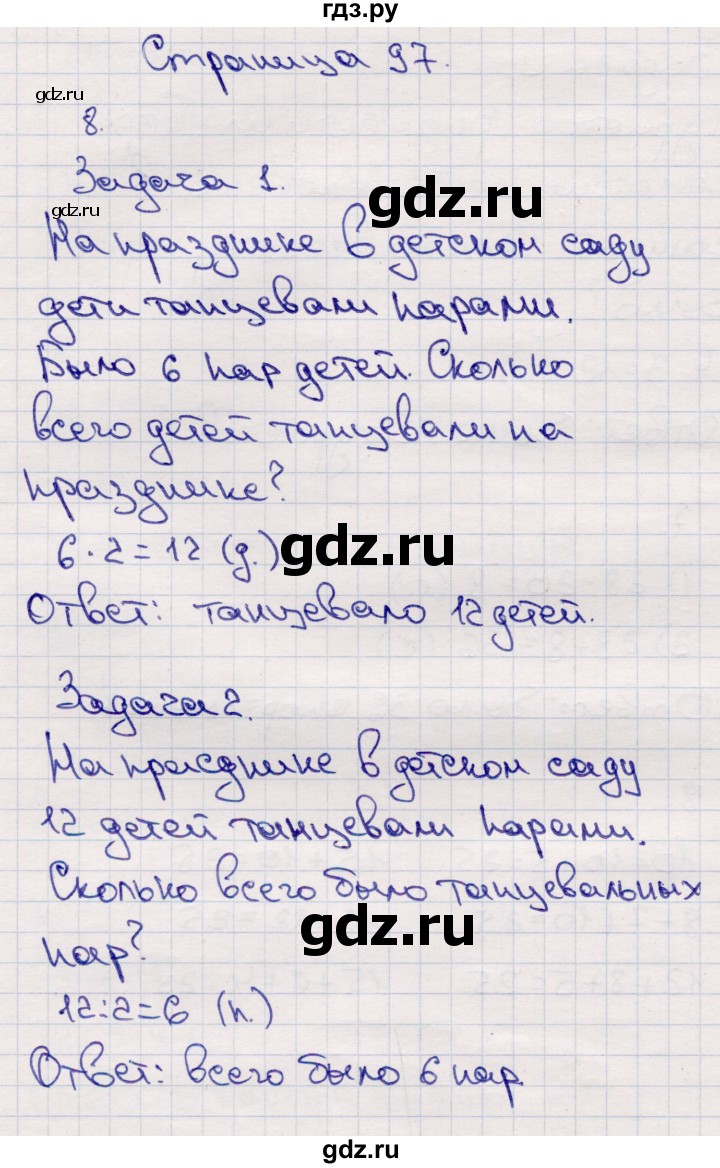 гдз.ру
Страница 97.
gdz.ru
8.
Задача 1.
gdz.ru
gdz.ru
На празднике в детском саду
дети танцевали парами.
Было 6 пар детей. Сколько
всего детей танцевали на
празднике?
6 · 2 = 12 (д.)
gdz.ru
Ответ: танцевало 12 детей.
Задача 2.
На празднике в детском саду
12 детей танцевали парами.
Сколько всего было танцевальных
gdz.ru
пар?
12:2=6 (п.)
Ответ: всего было 6 пар
gdz.ru